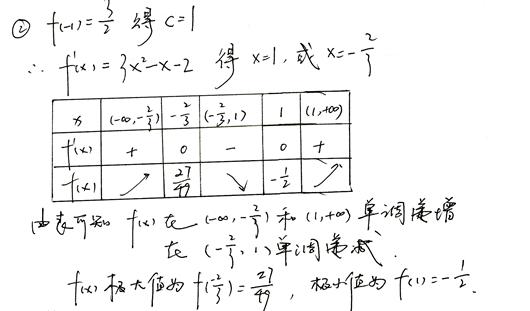 ② f(-1)=3/2 得 C=1
∴ f'(x)=3x²-x-2 得 x=1,或 x=-2/3
x (-∞,-2/3) -2/3 (-2/3,1) 1 (1,+∞)
f'(x) + 0 - 0 +
f(x) ↗ 27/49 ↘ -1/2 ↗
由表可知 f(x) 在 (-∞,-2/3) 和 (1,+∞) 单调递增
在 (-2/3,1) 单调递减.
f(x) 极大值为 f(-2/3)=27/49, 极小值为 f(1)=-1/2.